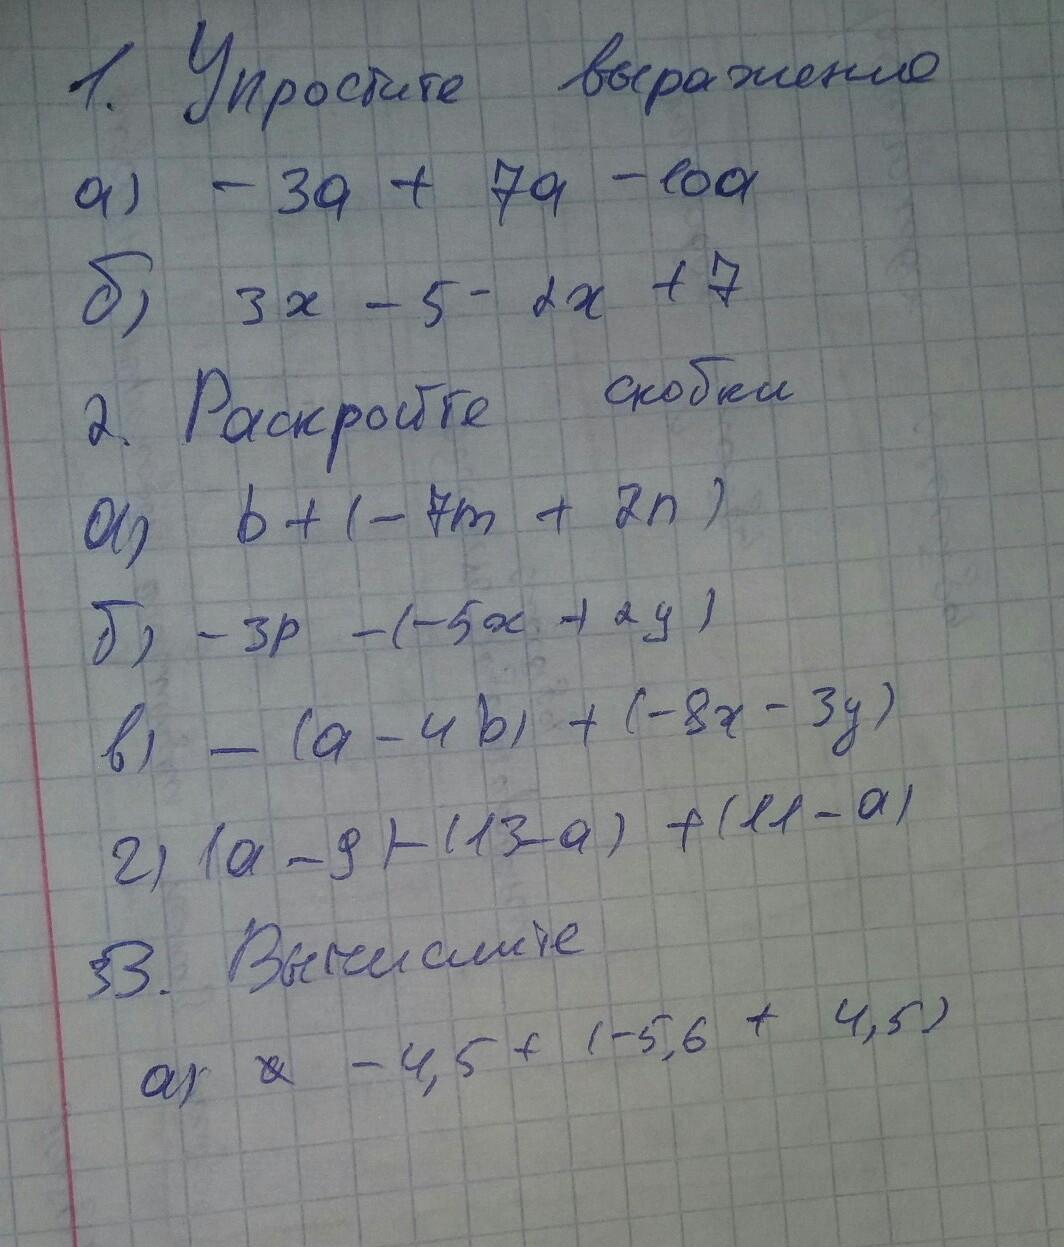 1. Упростите выражение
а) - 3a + 7a - 10a
б) 3x - 5 - 2x + 7
2. Раскройте скобки
а) b + (- 7m + 2n)
б) - 3p - (-5x + 2y)
в) - (a - 4b) + (-8x - 3y)
г) (a - 9) - (13 - a) + (11 - a)
3. Вычислите
а) - 4,5 + (-5,6 + 4,5)